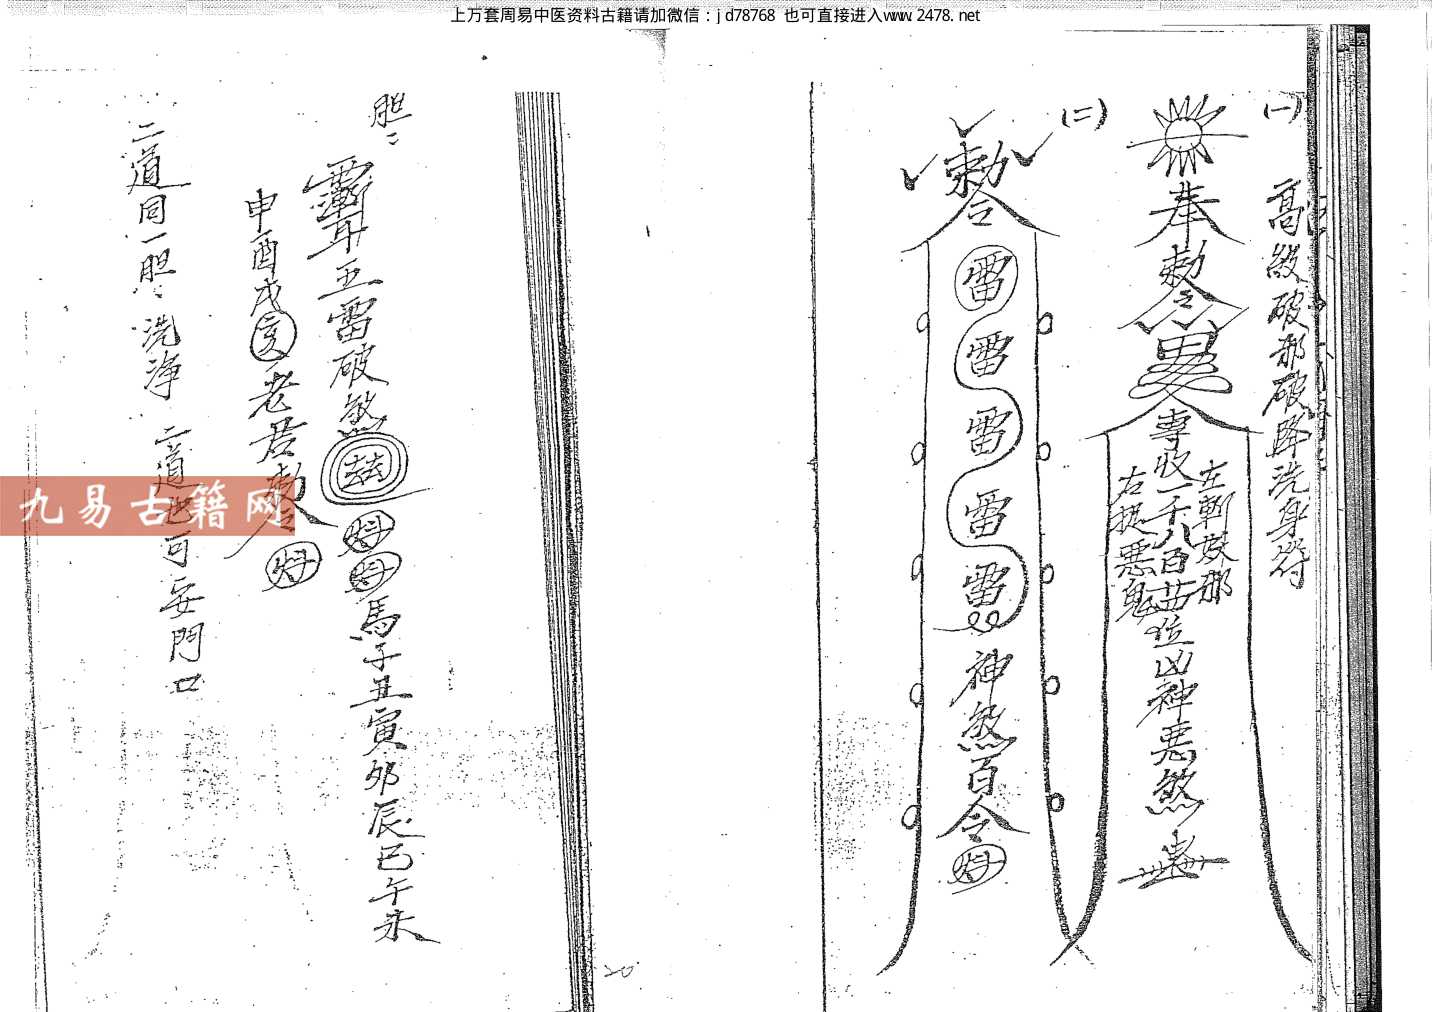 上万套周易中医资料古籍请加微信：jd78768 也可直接进入www.2478.net
(一)
高級破邪破降洗身符
奉勅令
專收一千八百廿位凶神惡煞
左斬妖邪
右捉惡鬼
(二)
勅令
雷
雷
雷
雷
雷
神煞百令
胆
五雷破煞
馬子丑寅卯辰巳午未
申酉戌亥老君勅令
二道同一胆洗淨
二道也可安門口
九易古籍网
20